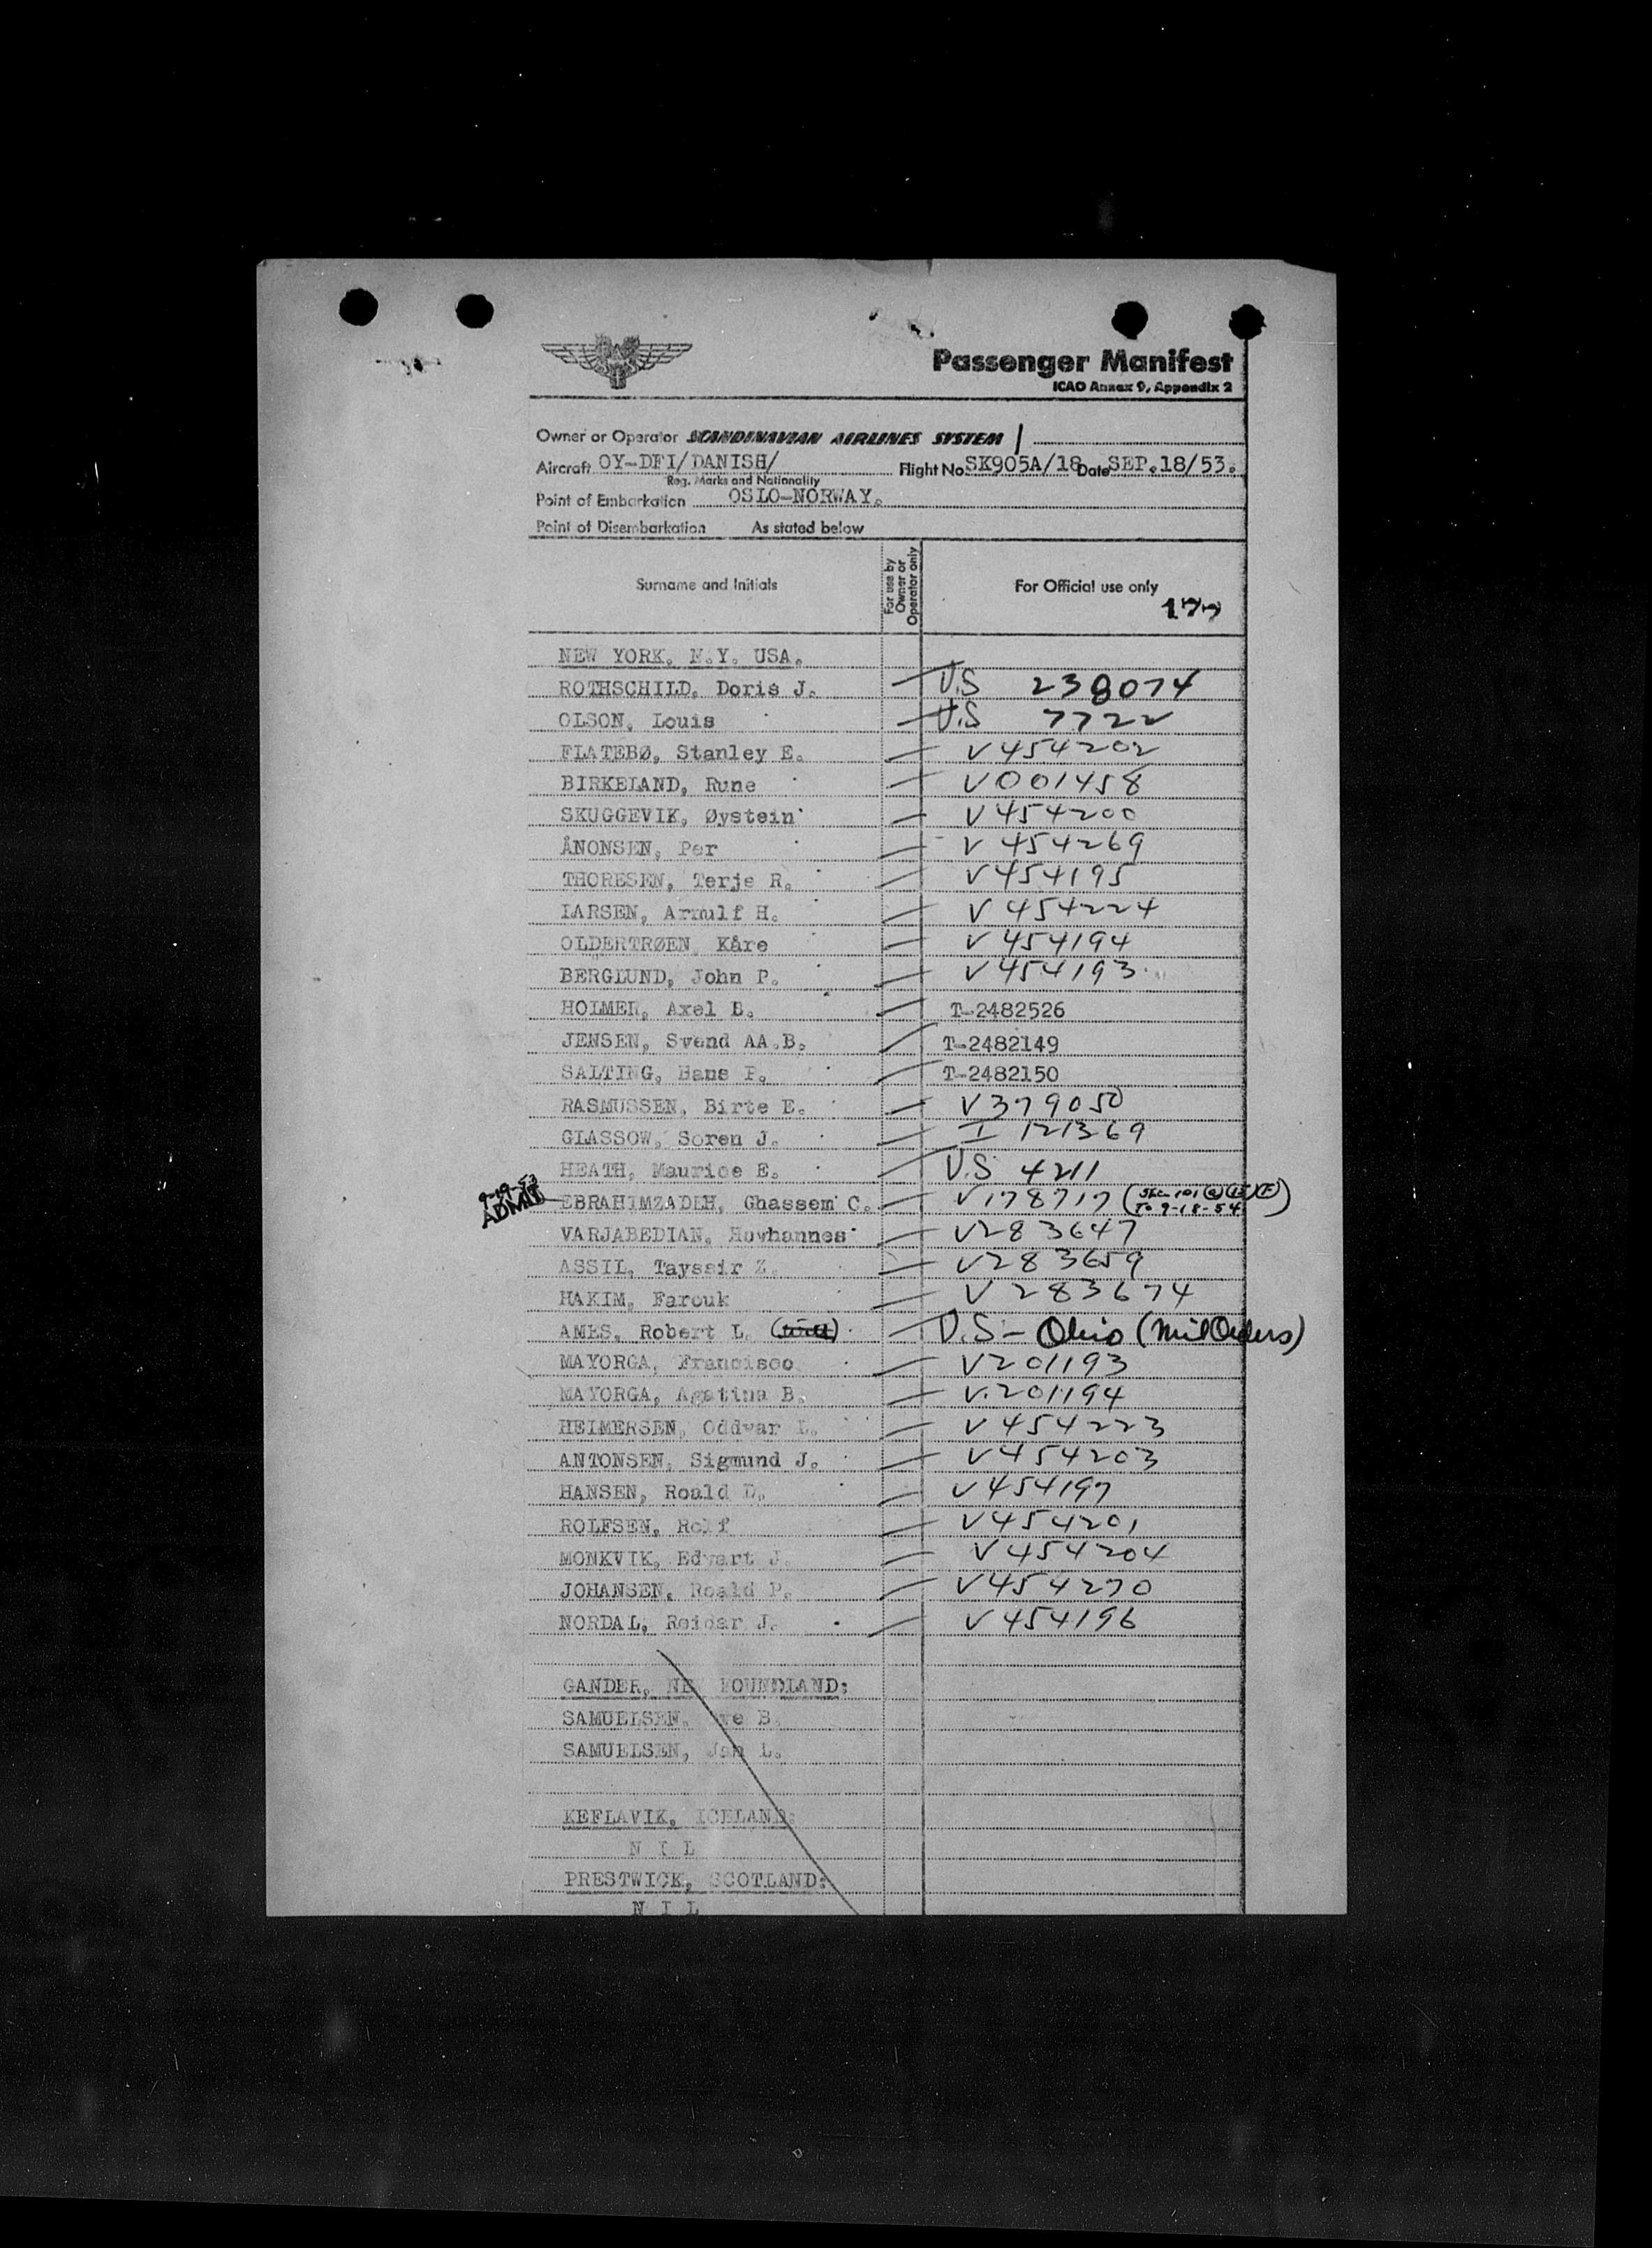 Passenger Manifest
ICAO Annex 9, Appendix 2
Owner or Operator SCANDINAVIAN AIRLINES SYSTEM
Aircraft OY-DFI/DANISH/ Flight No SK905A/18 Date SEP.18/53.
Reg. Marks and Nationality
Point of Embarkation OSLO-NORWAY.
Point of Disembarkation As stated below
Surname and Initials For use by Owner or Operator only For Official use only
177
NEW YORK, N.Y. USA.
ROTHSCHILD, Doris J. U.S 238074
OLSON, Louis U.S 7722
FLATEBØ, Stanley E. V454202
BIRKELAND, Rune V001458
SKUGGEVIK, Øystein V454200
ÅNONSEN, Per V454269
THORESEN, Terje R. V454195
LARSEN, Arnulf H. V454224
OLDERTRØEN, Kåre V454194
BERGLUND, John P. V454193
HOLMER, Axel B. T-2482526
JENSEN, Svend AA.B. T-2482149
SALTING, Hans P. T-2482150
RASMUSSEN, Birte E. V379050
GLASSOW, Soren J. I 121369
HEATH, Maurice E. U.S 4211
9-19-53
ADMIT
EBRAHIMZADEH, Ghassem C. V178717 (Sec 101 To 9-18-54)
VARJABEDIAN, Huvhannes V283647
ASSIL, Tayssir Z. V283659
HAKIM, Farouk V283674
AMES, Robert L. U.S - Ohio (Mil Orders)
MAYORGA, Francisco V201193
MAYORGA, Agatina B. V.201194
HEIMERSEN, Oddvar L. V454223
ANTONSEN, Sigmund J. V454203
HANSEN, Roald V454197
ROLFSEN, Rolf V454201
MONKVIK, Edvart J. V454204
JOHANSEN, Roald P. V454270
NORDAL, Reidar J. V454196
GANDER, NEWFOUNDLAND:
SAMUELSEN, B.
SAMUELSEN, Jan L.
KEFLAVIK, ICELAND:
N I L
PRESTWICK, SCOTLAND:
N I L